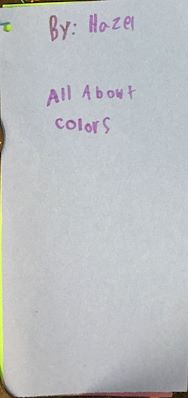 By: Hazel
All About
colors